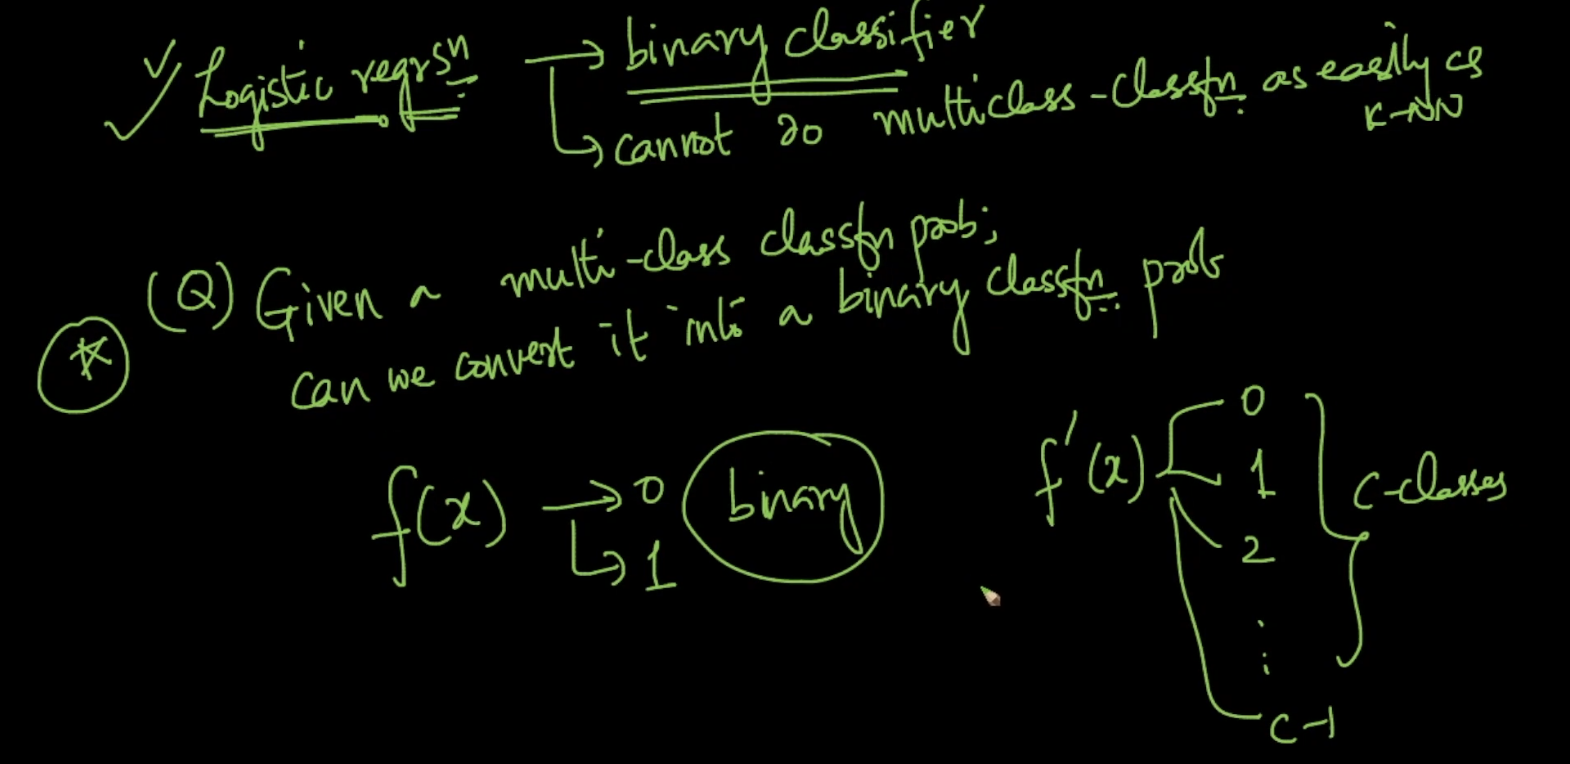 Logistic regrsn → binary classifier
↳ cannot do multiclass-classfn. as easily as
K-NN
(Q) Given a multi-class classfn prob;
can we convert it into a binary classfn. prob
f(x) → 0 binary
↳ 1
f'(x) 0
1
2
⋮
C-1
C-classes